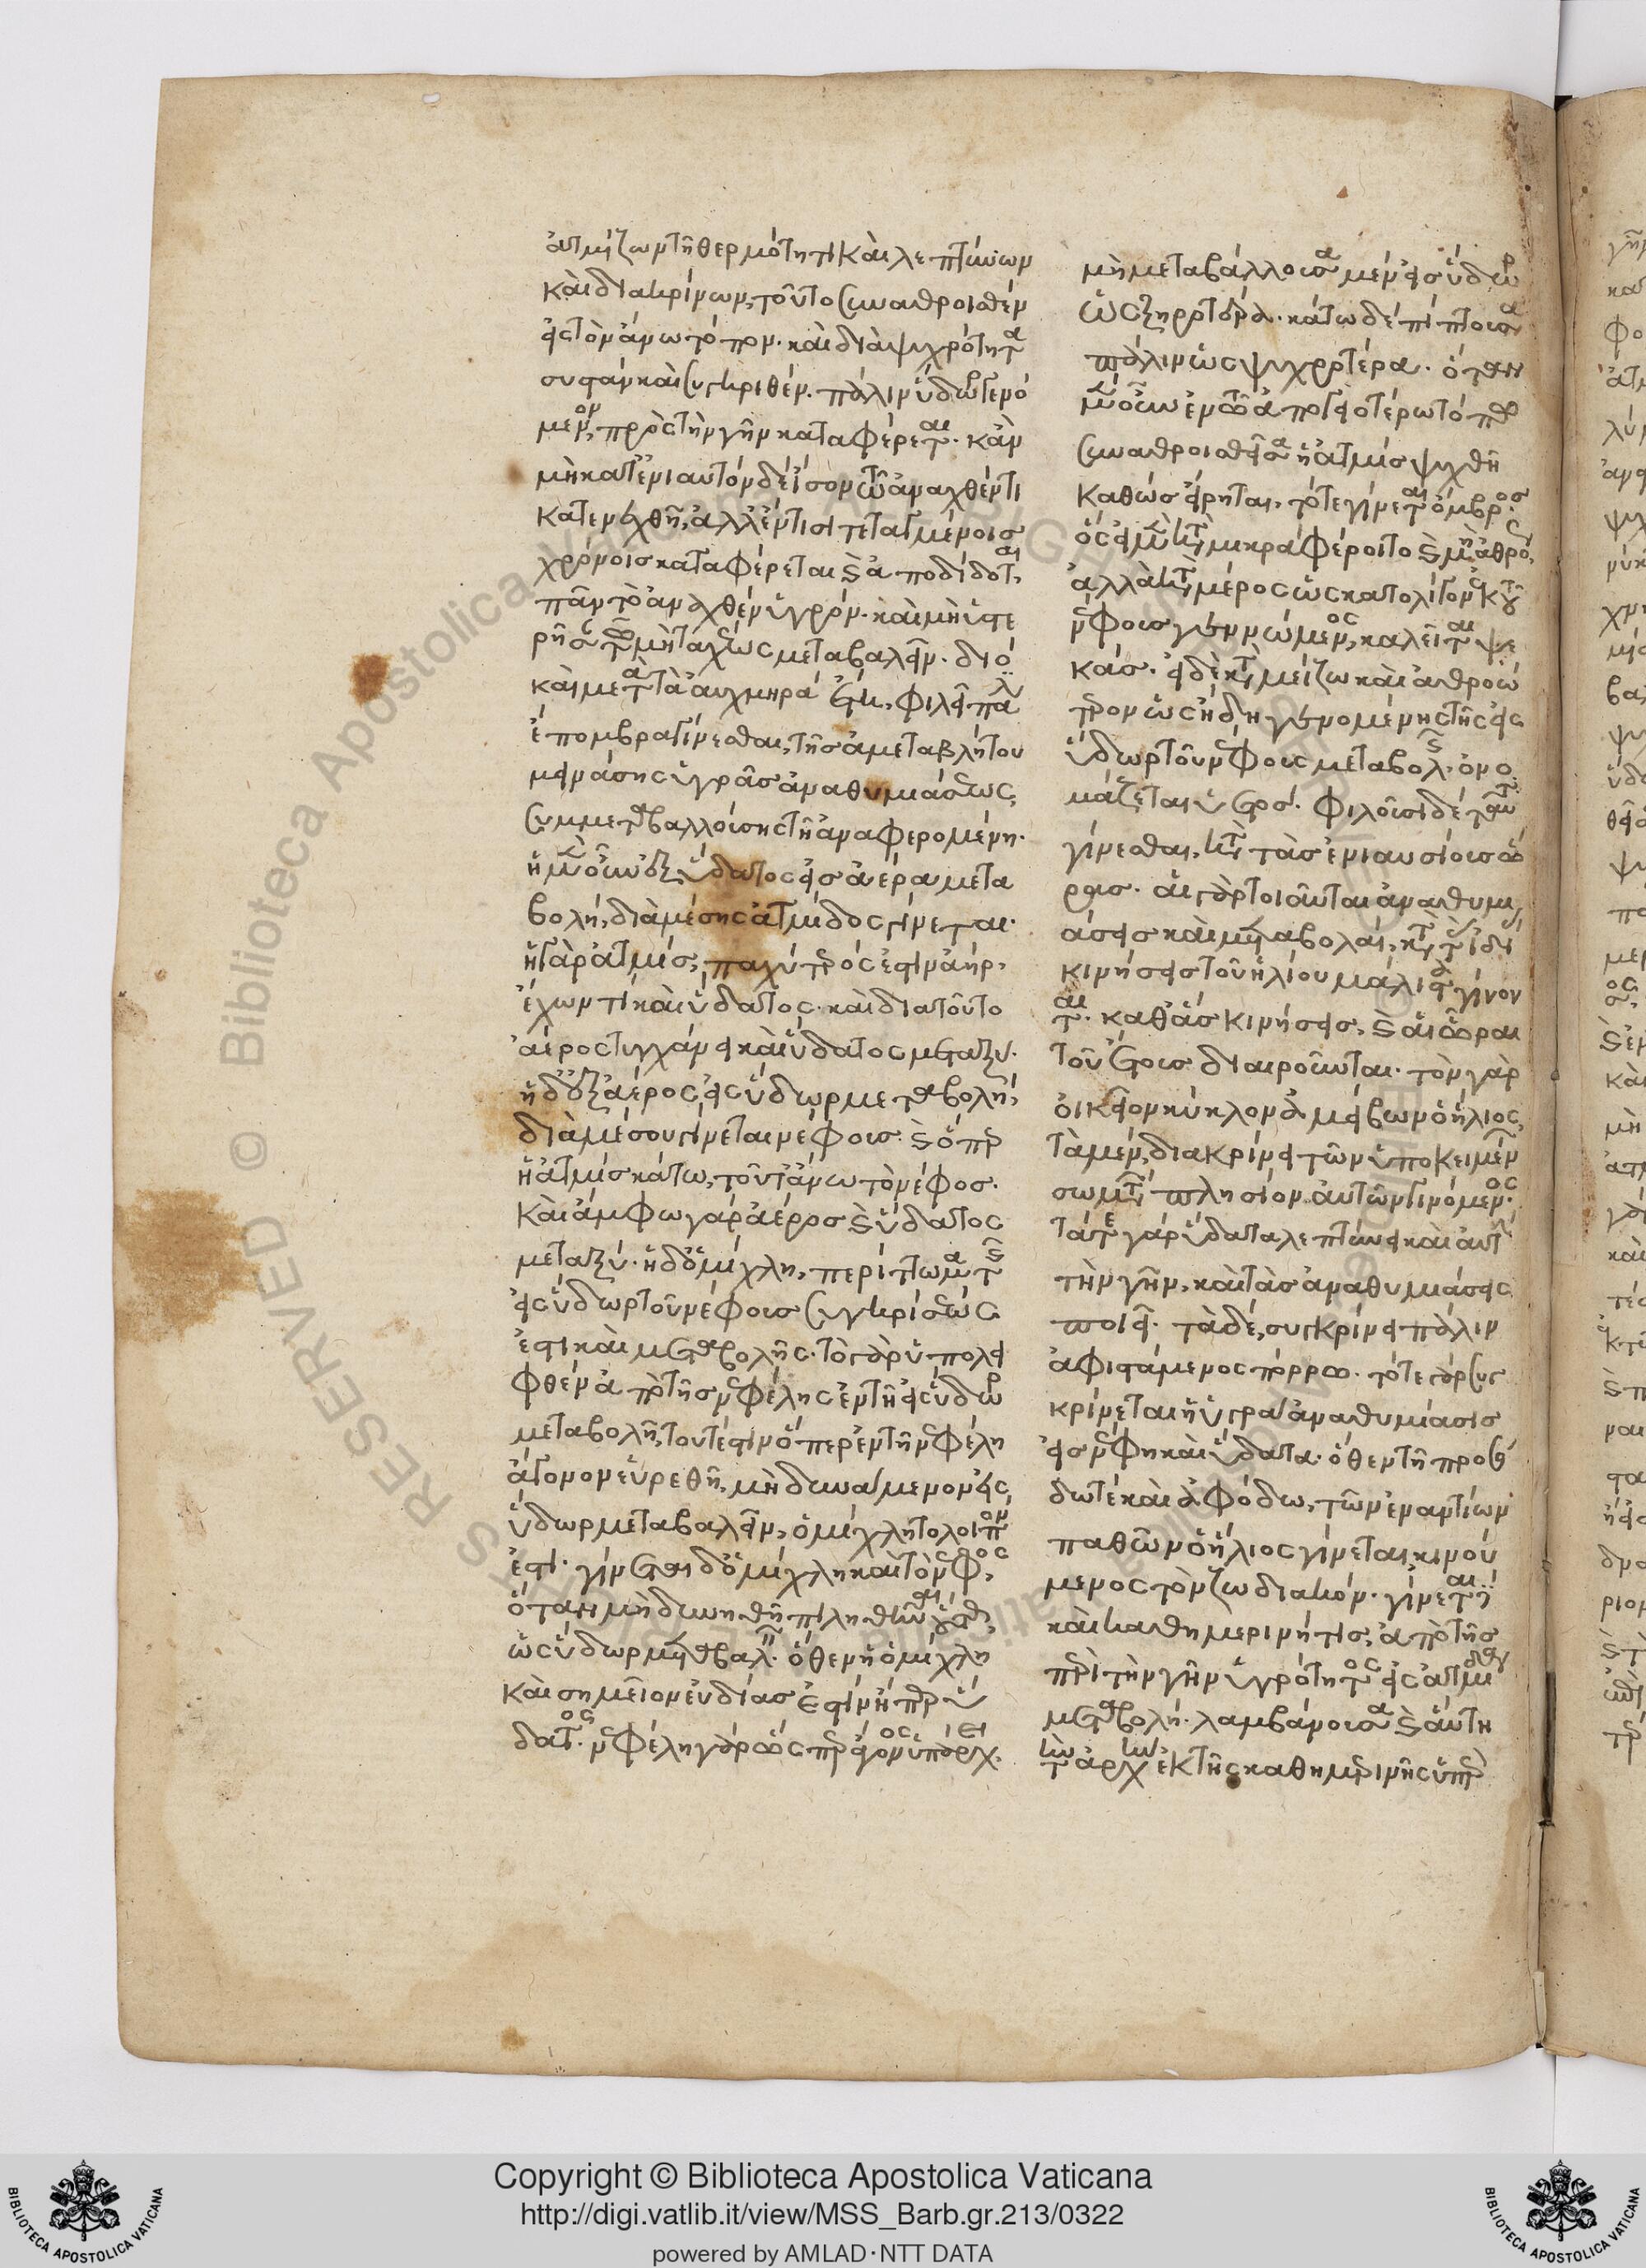 ἀτμίζων τῆ θερμότητι καὶ λεπτύνων
καὶ διακρίνων, τοῦτο συναθροισθὲν
εἰς τὸν ἄνω τόπον. καὶ διὰ ψυχρότητα
συστὰν καὶ συγκριθὲν. πάλιν ὕδωρ γενό
μενον, πρὸς τὴν γῆν καταφέρεται. κἂν
μὴ κατ' ἐνιαυτὸν δὲ ἴσον τῶ ἀναχθέντι
κατενεχθῆ, ἀλλ' ἔν τισι τεταγμένοις
χρόνοις καταφέρεται καὶ ἀποδίδοται
πᾶν τὸ ἀναχθὲν ὑγρόν. καὶ μὴ ὑστε
μὴ ταχέως μεταβαλεῖν. διὸ
καὶ μετὰ τὰ αὐχμηρὰ ἔτη, φιλεῖ
ἔπομβρα γίνεσθαι, τῆς ἀμεταβλήτου
μεινάσης ὑγρᾶς ἀναθυμιάσεως,
συμμεταβαλλούσης τῆ ἀναφερομένη.
ἡ μὲν οὖν ἐξ ὕδατος εἰς ἀέρα μετα
βολὴ, διὰ μέσης ἀτμίδος γίνεται.
ἡ γὰρ ἀτμὶς, παχύτερός ἐστιν ἀὴρ,
ἔχων τι καὶ ὕδατος. καὶ διατοῦτο
ἀέρος τυγχάνει καὶ ὕδατος μεταξύ.
ἡ δ' ἐξ ἀέρος εἰς ὕδωρ μεταβολὴ,
διὰ μέσου γίνεται νέφους. καὶ ὅπερ
ἡ ἀτμὶς κάτω, τοῦτ' ἄνω τὸ νέφος.
καὶ ἄμφω γὰρ ἀέρος καὶ ὕδατος
μεταξύ. ἡ δ' ὁμίχλη, περίττωμα τῆς
εἰς ὕδωρ τοῦ νέφους συγκρίσεως
ἐστὶ καὶ μεταβολῆς. τὸ γὰρ ὑπολει
φθὲν ἀπὸ τῆς νεφέλης ἐν τῆ εἰς ὕδωρ
μεταβολῆ, τουτέστιν ὅπερ ἐν τῆ νεφέλη
ἄγονον εὑρεθῆ, μὴ δυνάμενον εἰς
ὕδωρ μεταβαλεῖν, ὁμίχλη τὸ λοιπόν
ἐστι. γίνεται δ' ὁμίχλη καὶ τὸ νέφος,
ὅταν μὴ δυνηθῆ πιληθῆναι
ὡς ὕδωρ μεταβαλεῖν. ὅθεν ἡ ὁμίχλη
καὶ σημεῖον εὐδίας ἐστὶν ἤπερ ὕ
δατος. νεφέλη γὰρ
μὴ μεταβάλλουσα μὲν εἰς ὕδωρ
ὡς ξηροτέρα. κάτω δὲ πίπτουσα
πάλιν ὡς ψυχροτέρα. ὅταν
μὲν οὖν ἐν τῶ ἀπογειοτέρω τόπω
συναθροισθεῖσα ἡ ἀτμὶς ψυχθῆ
καθὼς εἴρηται, τότε γίνεται ὄμβρος.
ὃς εἰ μὲν κατὰ μικρὰ φέροιτο καὶ μὴ ἀθρό
ἀλλὰ κατὰ μέρος ὡς κατολίγον ἐκ τοῦ
νέφους γεννώμενος, καλεῖται ψε
κάς. εἰ δὲ κατὰ μείζω καὶ ἀθροώ
τερον ὡς ἤδη γενομένης τῆς εἰς
ὕδωρ τοῦ νέφους μεταβολῆς. ὀνο
μάζεται ὑετός. φιλοῦσι δὲ ταῦτα
γίνεσθαι, κατὰ τὰς ἐνιαυσίους ὥ
ρας. αἱ γὰρ τοιαῦται ἀναθυμι
άσεις καὶ μεταβολαὶ, κατὰ τὰς ἰδί
κινήσεις τοῦ ἡλίου μάλιστα γίνον
ται. καθ' ἃς κινήσεις, καὶ αἱ ὧραι
τοῦ ἔτους διαιροῦνται. τὸν γὰρ
οἰκεῖον κύκλον ἀμείβων ὁ ἥλιος,
τὰ μὲν, διακρίνει τῶν ὑποκειμένων
σωμάτων πλησίον αὐτῶν γινόμενος.
τά τε γὰρ ὕδατα λεπτύνει καὶ αὐτὴν
τὴν γῆν, καὶ τὰς ἀναθυμιάσεις
ποιεῖ. τὰ δὲ, συγκρίνει πάλιν
ἀφιστάμενος πόρρω. τότε γὰρ συγ
κρίνεται ἡ ὑγρὰ ἀναθυμίασις
εἰς νέφη καὶ ὕδατα. ὅθεν τῆ προσό
δω τὲ καὶ ἀφόδω, τῶν ἐναντίων
παθῶν ὁ ἥλιος γίνεται, κινού
μενος τὸν ζωδιακόν. γίνεται
καὶ καθημερινή τις, ἀπὸ τῆς
περὶ τὴν γῆν ὑγρότητος εἰς ἀτμίδα
μεταβολὴ. λαμβάνουσα καὶ αὕτη
τὴν ἀρχὴν ἐκ τῆς καθημερινῆς ὑπὲρ
Copyright © Biblioteca Apostolica Vaticana
http://digi.vatlib.it/view/MSS_Barb.gr.213/0322
powered by AMLAD·NTT DATA
BIBLIOTECA APOSTOLICA VATICANA
BIBLIOTECA APOSTOLICA VATICANA